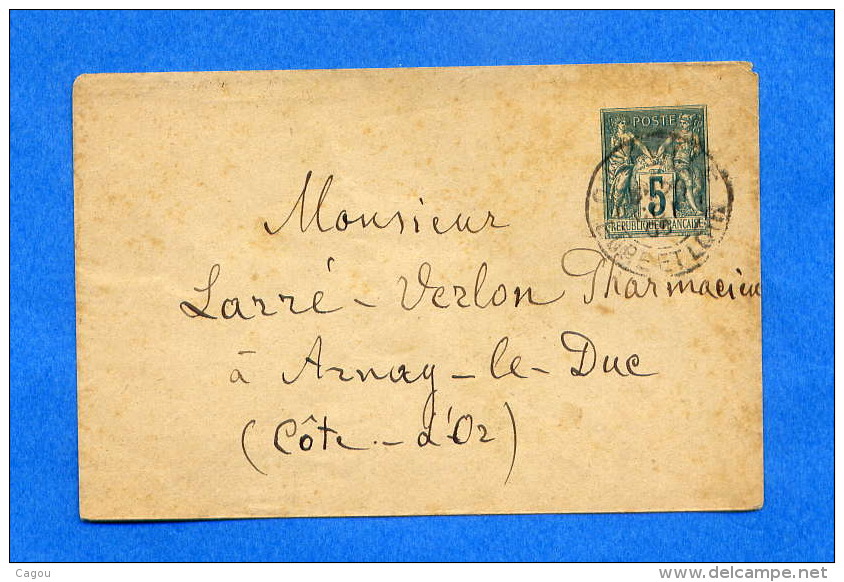 POSTE
5
REPUBLIQUE FRANÇAISE
EURE ET LOIR
Monsieur
Larré - Verlon Pharmacien
à Arnay - le - Duc
(Côte - d'Or)
Cagou
www.delcampe.net